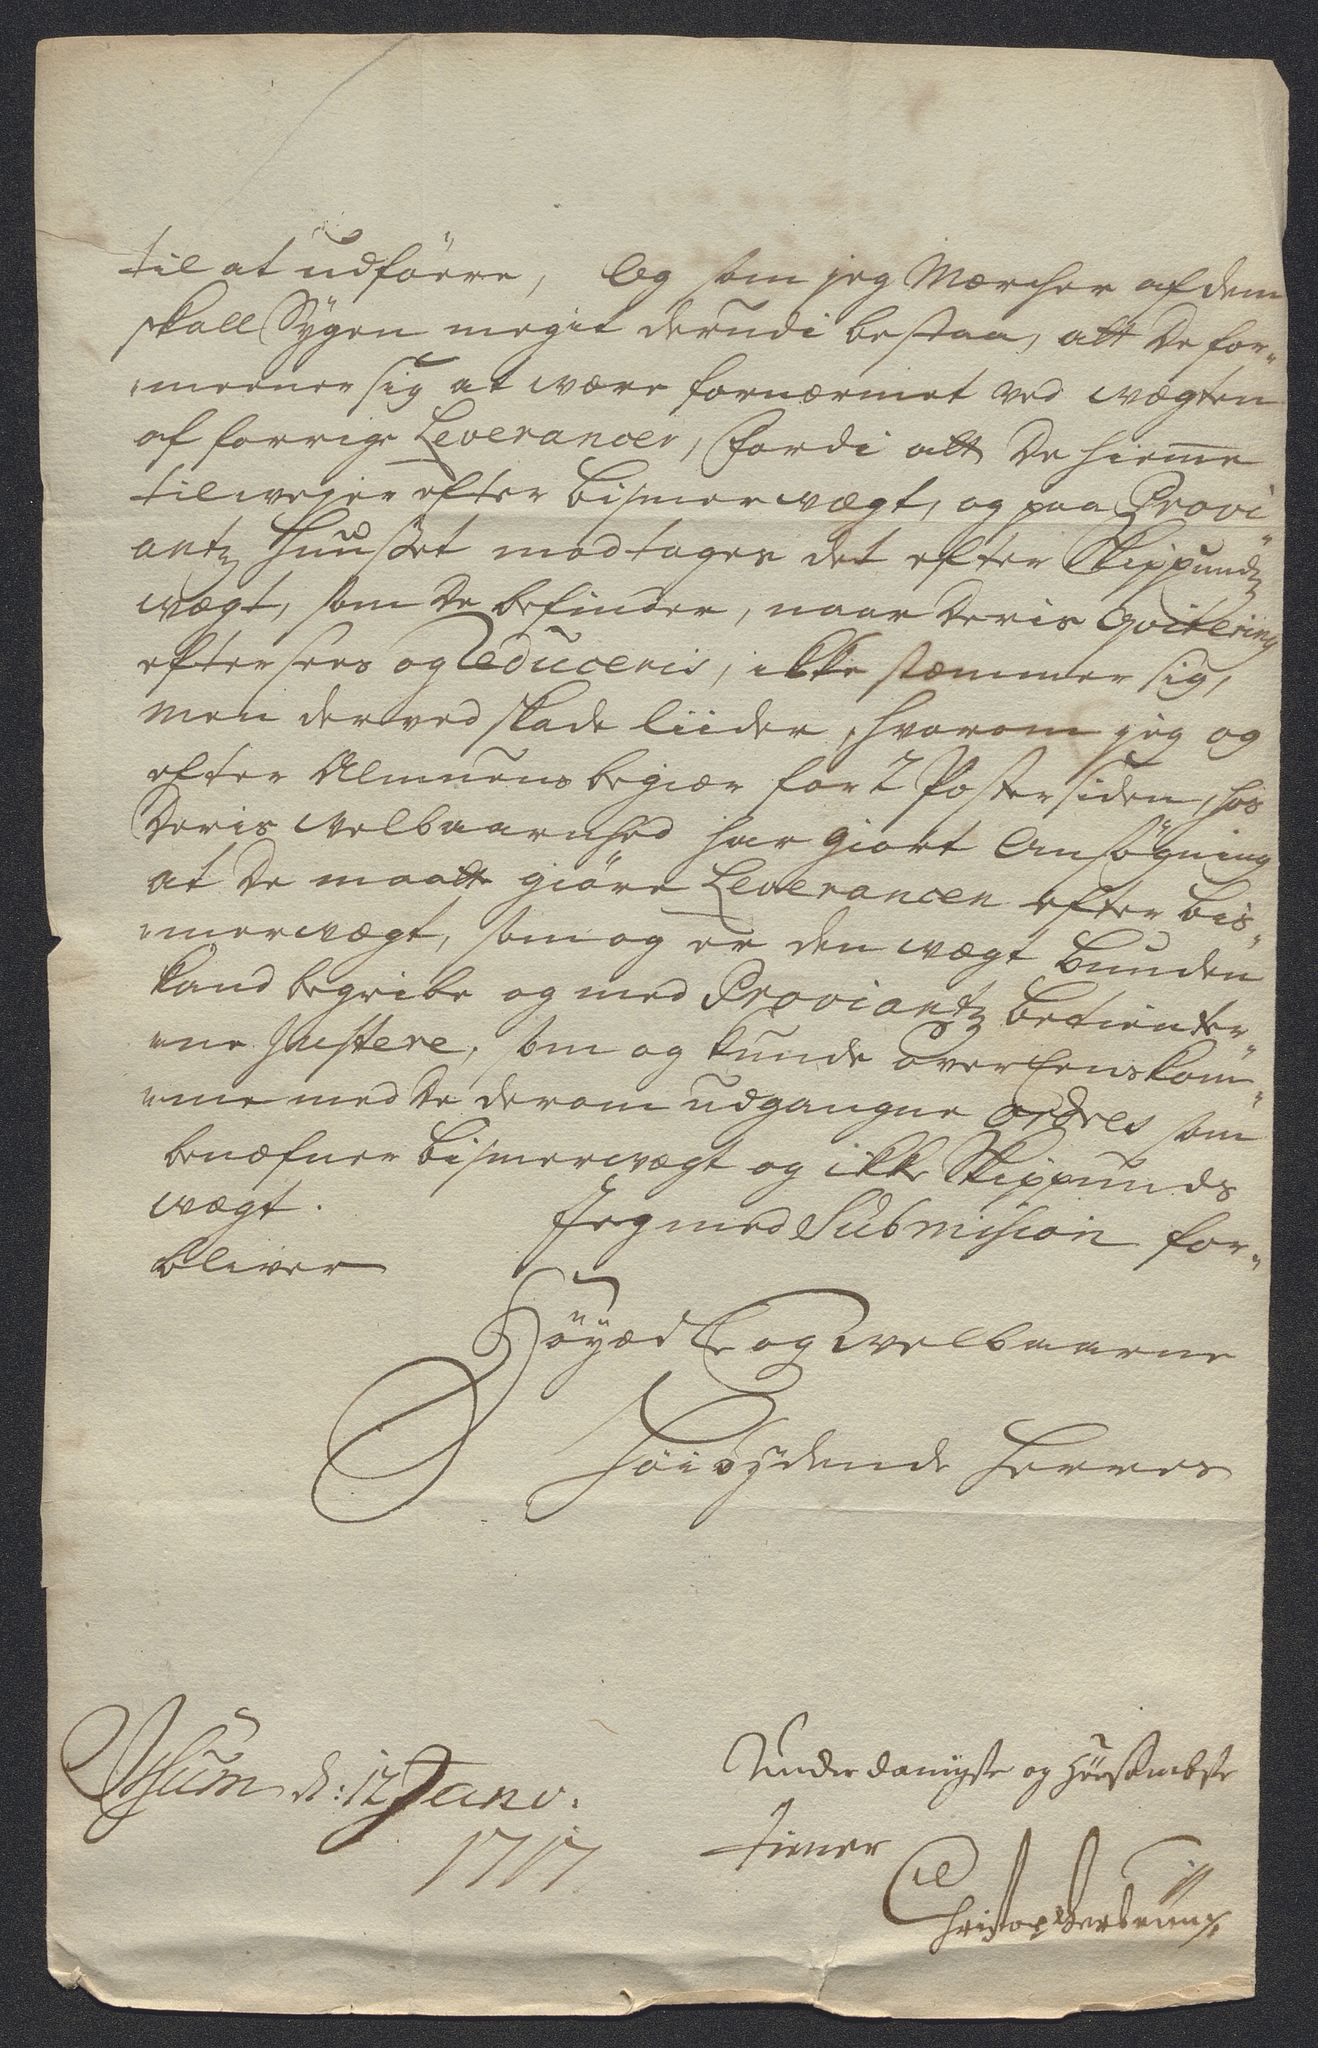 til at udföere, Og som jeg Mercher af dem
skall Sygen megit derudi bestaa, att De for-
meener sig at være fornærmet ved vægten
af forrige Leverancer, fordi att De hieme
tilvejer efter bismervægt, og paa Provi-
antz Huuset modtages det efter Skippundtz
vægt, som De befinder, naar Deris Qvitering
eftersees og Reduceris, ikke stemmer sig,
men derved skade liider, hvorom jeg og
efter Almuens begiær for 2 Poster siden, hos
Deris Velbaarnhed har giort Ansøgning
at De maatte giöre Leverancen efter bis-
mervægt, som og er den vægt Bunden
kand begribe og med Proviantz betienter-
ne justere, som og kunde overEenskom-
me med De derom udgangne ordres som
benæfner bismervægt og ikke Skippunds
vægt. Jeg med Submission for-
bliver
Höyædle og Velbaarne
Höibydende Herres
d: 12 Janv:
1717
Underdanigste og Hørsambste
tiener
Christop